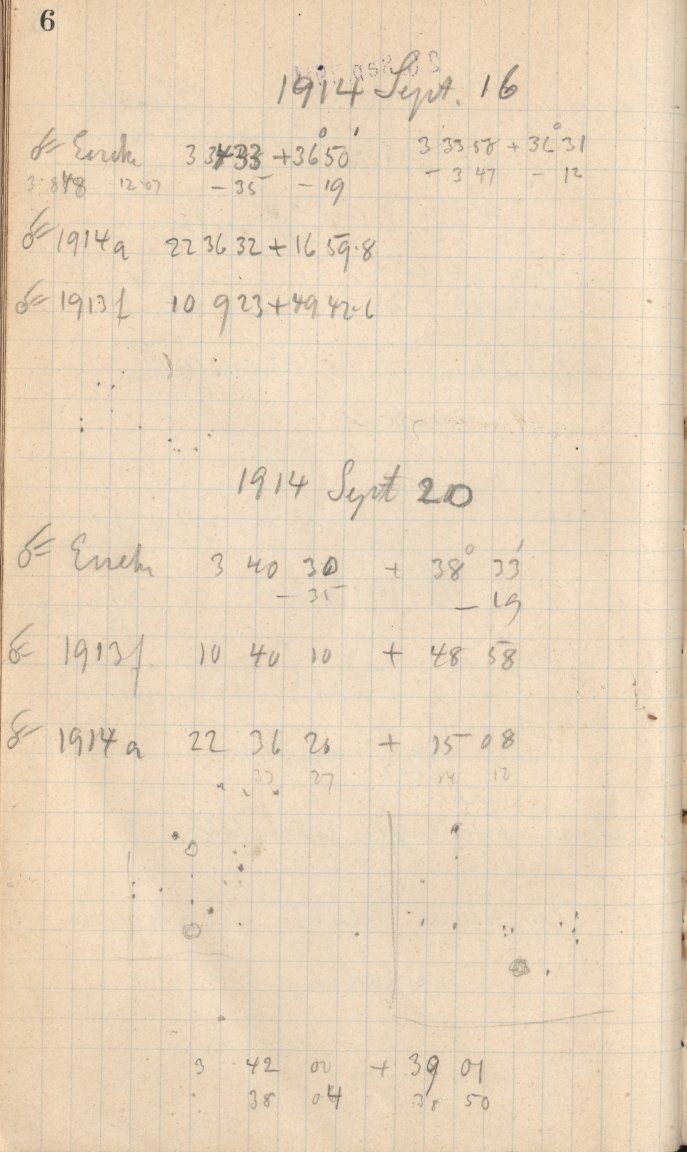 6
1914 Sept. 16
☄ Encke 3 34 33 + 36° 50' 3 33 58 + 36° 31
- 35 - 19 - 3 47 - 12
☄ 1914a 22 36 32 + 16 59.8
☄ 1913f 10 9 23 + 49 42.6
1914 Sept 20
☄ Encke 3 40 30 + 38° 33'
- 35 - 19
☄ 1913f. 10 40 10 + 48 58
☄ 1914a 22 36 20 + 15 08
33 27 14 12
3 42 00 + 39 01
38 04 38 50